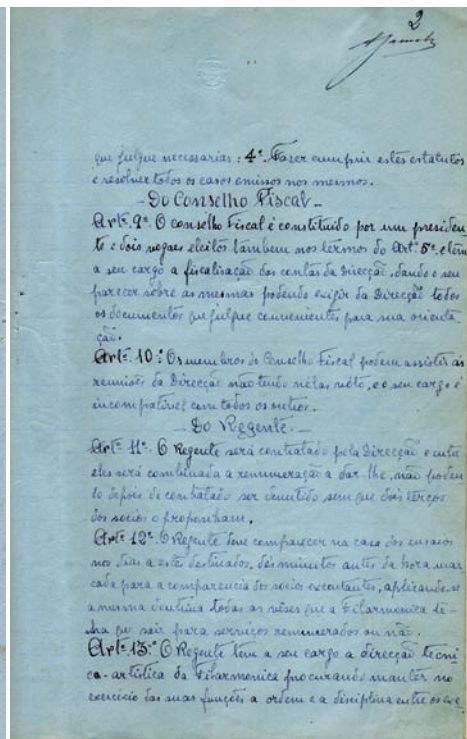 2
que julgue necessarias: 4º Fazer cumprir estes estatutos
e resolver todos os casos omissos nos mesmos.
- Do Conselho Fiscal -
Artº. 9º. O conselho Fiscal é constituido por um presiden
te e dois vogaes eleitos tambem nos termos do Artº 5º. e têm
a seu cargo a fiscalisação das contas da Direcção, dando o seu
parecer sobre as mesmas podendo exigir da Direcção todos
os documentos que julgue convenientes para sua orienta
ção.
Artº. 10º. Os membros do Conselho Fiscal podem assistir ás
reuniões da Direcção não tendo nelas vóto, e o seu cargo é
incompativel com todos os outros.
- Do Regente -
Artº. 11º. O Regente será contratado pela Direcção e entre
eles será combinada a remuneração a dar-lhe, não poden
do depois de contratado ser demitido sem que dois terços
dos socios o proponham.
Artº. 12º. O Regente deve comparecer na casa dos ensaios
nos dias a este destinados, dés minutos antes da hora mar
cada para a comparencia dos socios executantes, aplicando-se
a mesma doutrina todas as vêses que a Filarmonica te-
nha que sair para serviços remunerados ou não.
Artº. 13º. O Regente tem a seu cargo a direcção tecni
ca-artistica da Filarmonica procurando manter no
exercicio das suas funções a ordem e a disciplina entre os exe